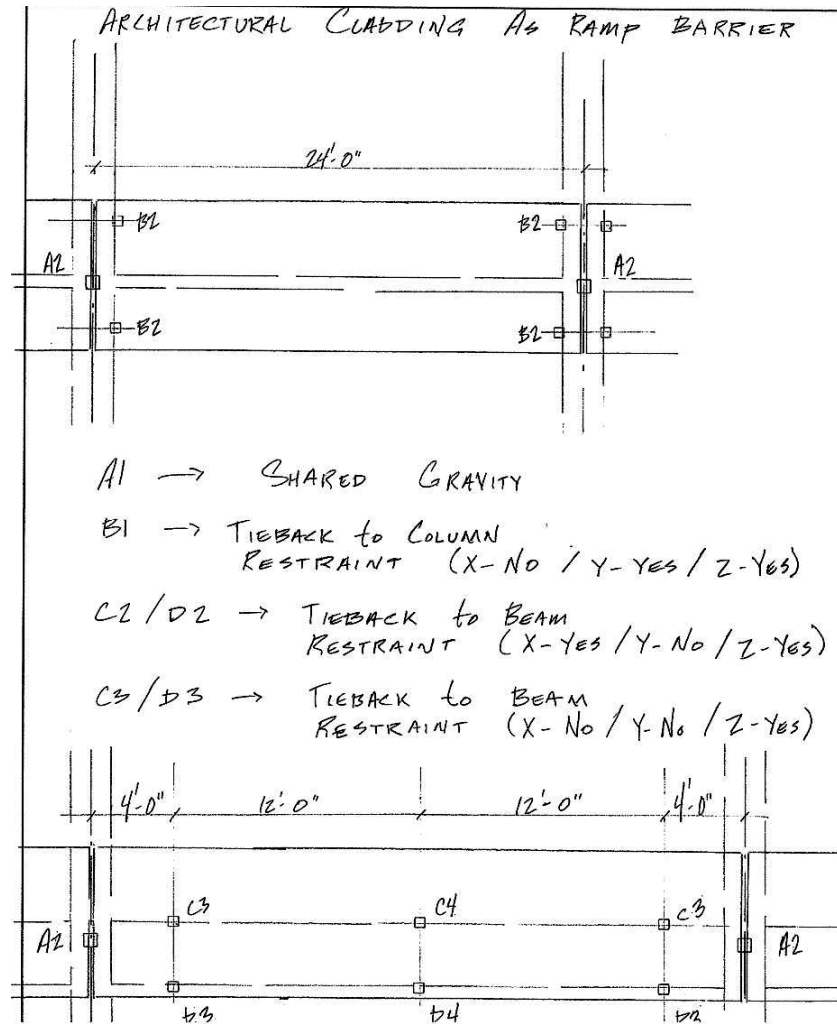 ARCHITECTURAL CLADDING AS RAMP BARRIER
24'-0"
B2 B2
A2 A2
B2 B2
A1 → SHARED GRAVITY
B1 → TIEBACK to COLUMN
RESTRAINT (X-NO / Y-YES / Z-YES)
C2/D2 → TIEBACK to BEAM
RESTRAINT (X-YES / Y-NO / Z-YES)
C3/D3 → TIEBACK to BEAM
RESTRAINT (X-NO / Y-NO / Z-YES)
4'-0" 12'-0" 12'-0" 4'-0"
C3 C4 C3
A2 A2
D3 D4 D2